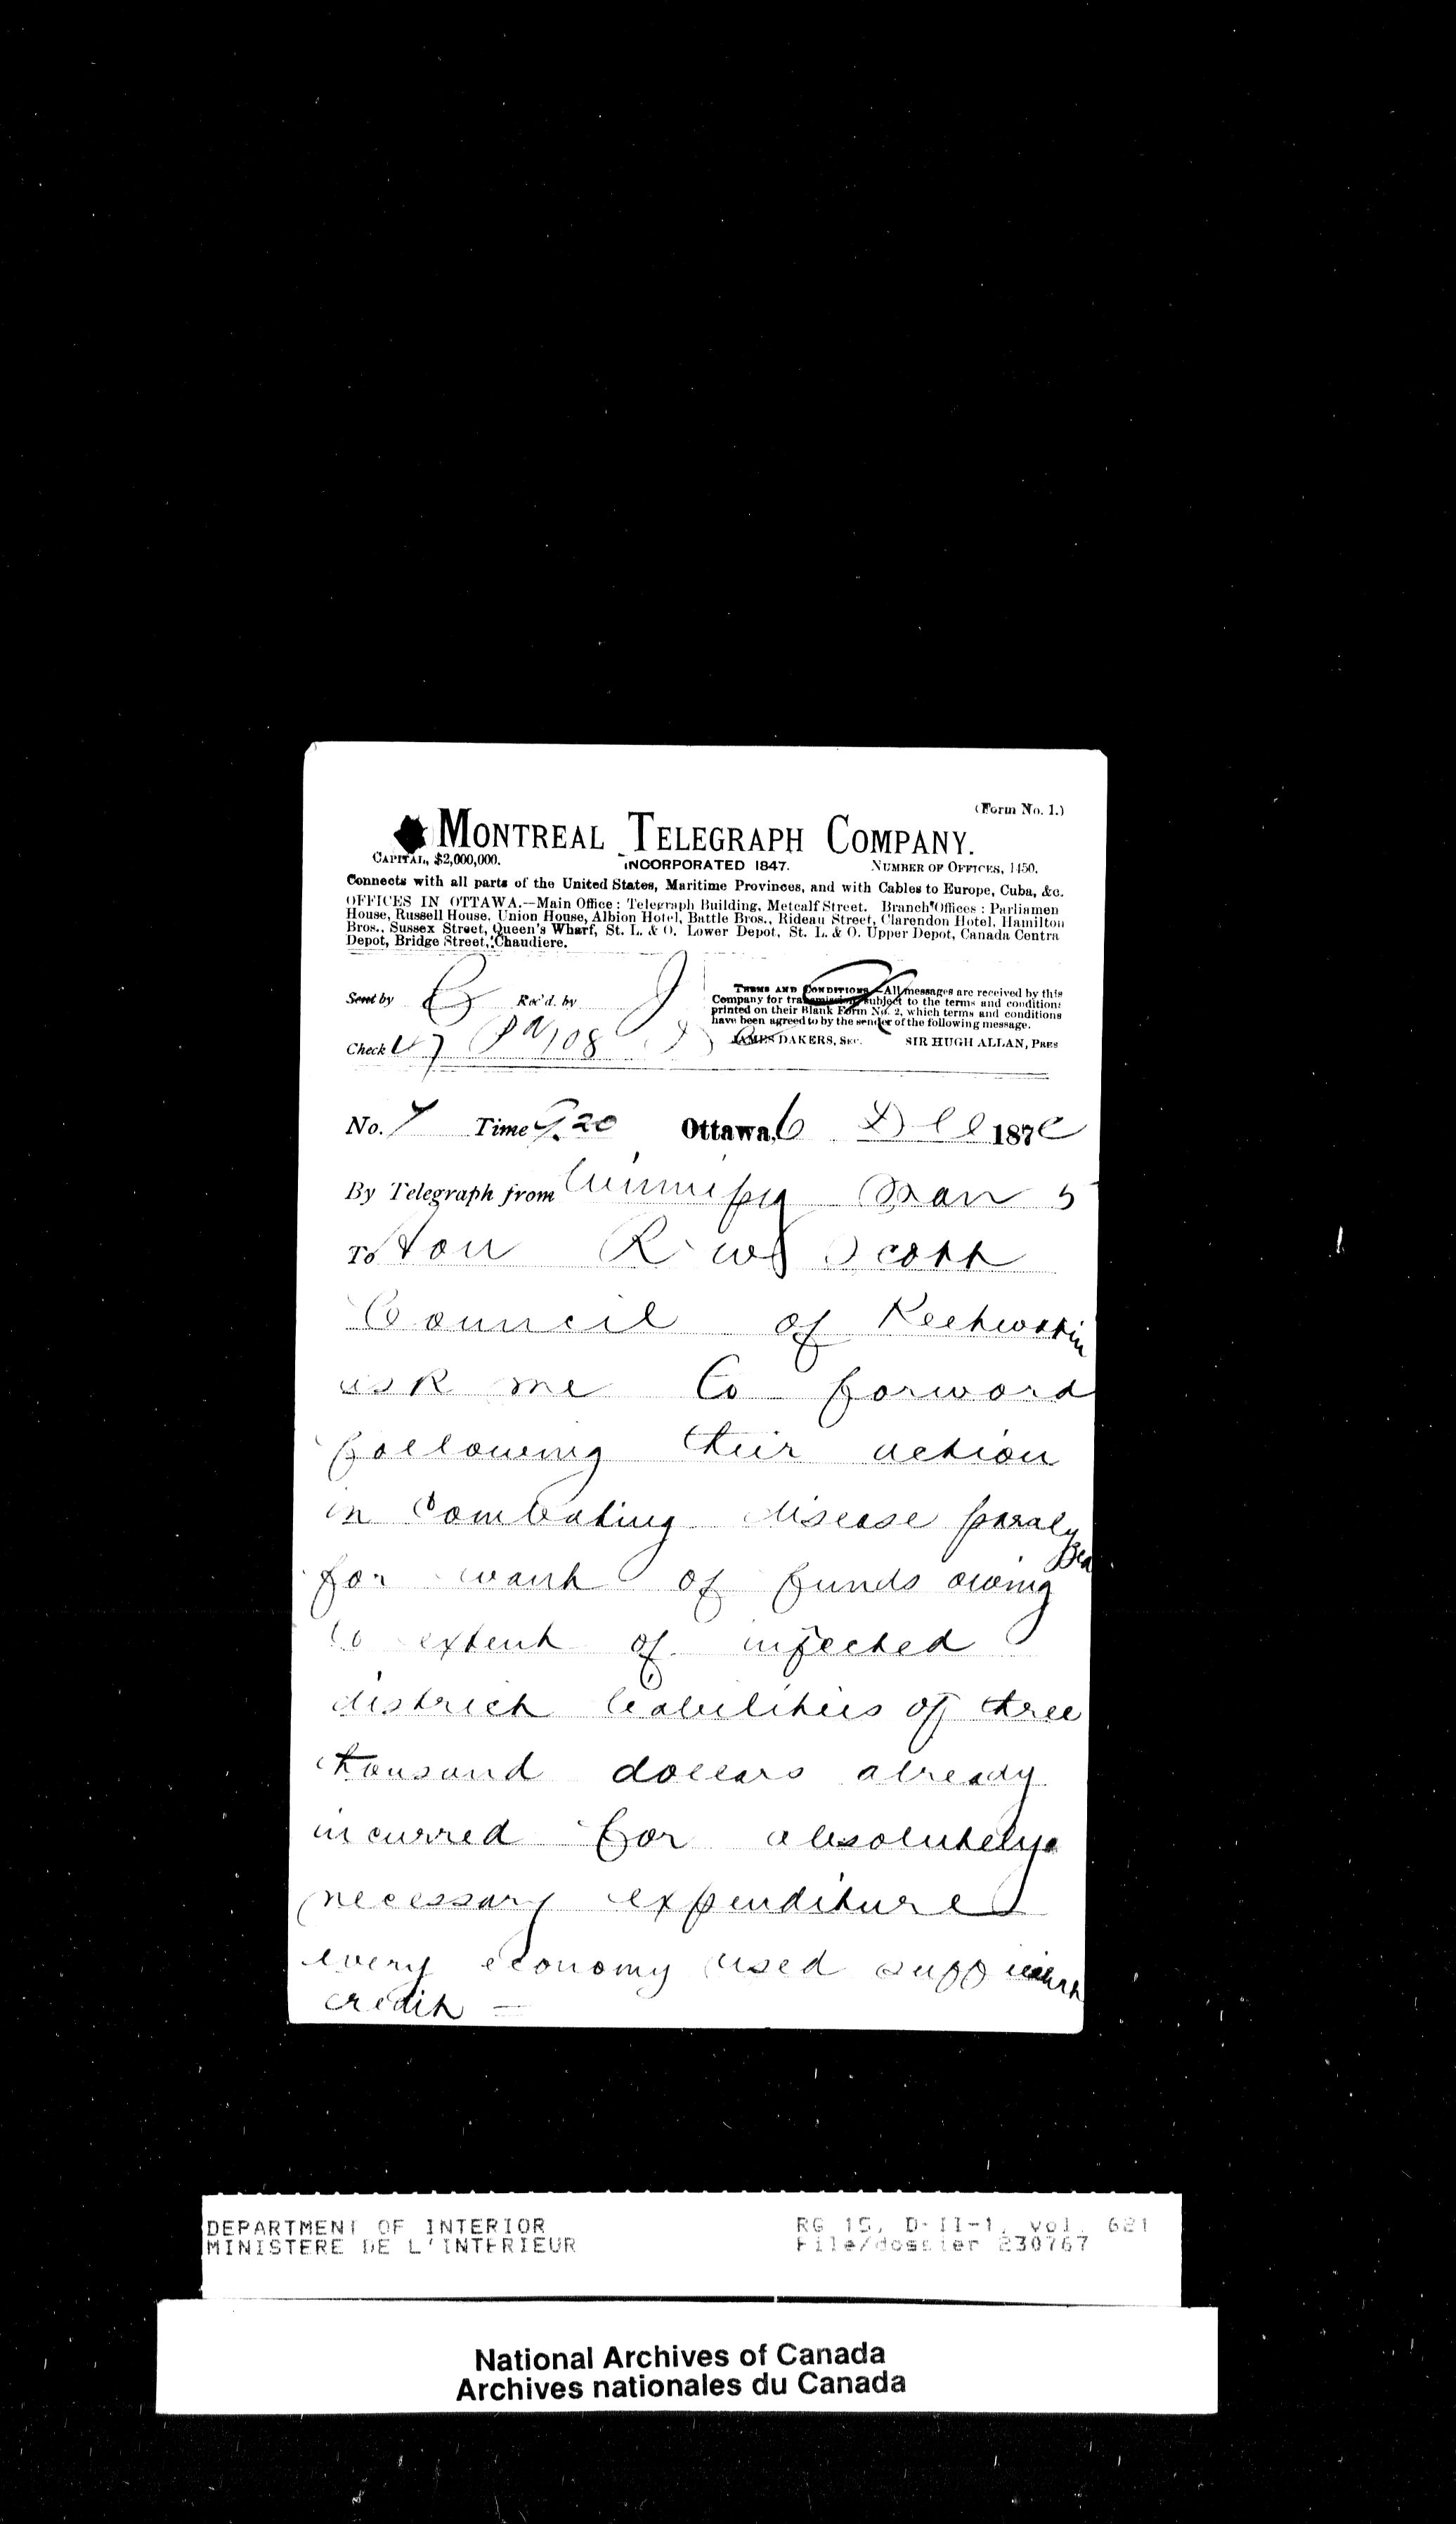 (Form No. 1.)
MONTREAL TELEGRAPH COMPANY.
CAPITAL, $2,000,000. INCORPORATED 1847. NUMBER OF OFFICES, 1450.
Connects with all parts of the United States, Maritime Provinces, and with Cables to Europe, Cuba, &c.
OFFICES IN OTTAWA.—Main Office: Telegraph Building, Metcalf Street. Branch Offices: Parliamen
House, Russell House, Union House, Albion Hotel, Battle Bros., Rideau Street, Clarendon Hotel, Hamilton
Bros., Sussex Street, Queen's Wharf, St. L. & O. Lower Depot, St. L. & O. Upper Depot, Canada Centra
Depot, Bridge Street, Chaudiere.
Sent by Rec'd. by
TERMS AND CONDITIONS—All messages are received by this
Company for transmission, subject to the terms and conditions
printed on their Blank Form No. 2, which terms and conditions
have been agreed to by the sender of the following message.
Check 47 108
JAMES DAKERS, SEC. SIR HUGH ALLAN, PRES
No. 7 Time 9.20 Ottawa, 6 Dec 187
By Telegraph from Winnipeg Man 5
To Hon R W Scott
Council of Keehwatin
ask me to forward
following their action
in combating disease paralyzed
for want of funds owing
to extent of infected
district liabilities of three
thousand dollars already
incurred for absolutely
necessary expenditure
every economy used sufficient
credit —
DEPARTMENT OF INTERIOR RG 15, D-II-1, vol. 621
MINISTERE DE L'INTERIEUR File/dossier 230767
National Archives of Canada
Archives nationales du Canada